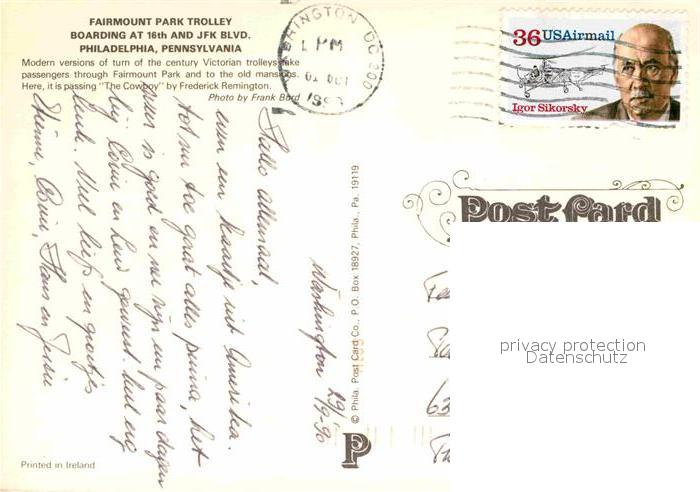 FAIRMOUNT PARK TROLLEY
BOARDING AT 16th AND JFK BLVD.
PHILADELPHIA, PENNSYLVANIA
Modern versions of turn of the century Victorian trolleys take
passengers through Fairmount Park and to the old mansions.
Here, it is passing "The Cowboy" by Frederick Remington.
Photo by Frank Burd
WASHINGTON DC 200
1 PM
01 OCT
36 USAirmail
Igor Sikorsky
Post Card
Washington 29/9-90
Hallo allemaal,
even een kaartje uit Amerika.
tot nu toe gaat alles prima, het
weer is goed en we zijn een paar dagen
bij Corin en geweest. heel erg
leuk. Veel liefs en groetjes
Hans en Jessie
© Phila. Post Card Co., P.O. Box 18927, Phila., Pa. 19119
P
63
privacy protection
Datenschutz
Printed in Ireland